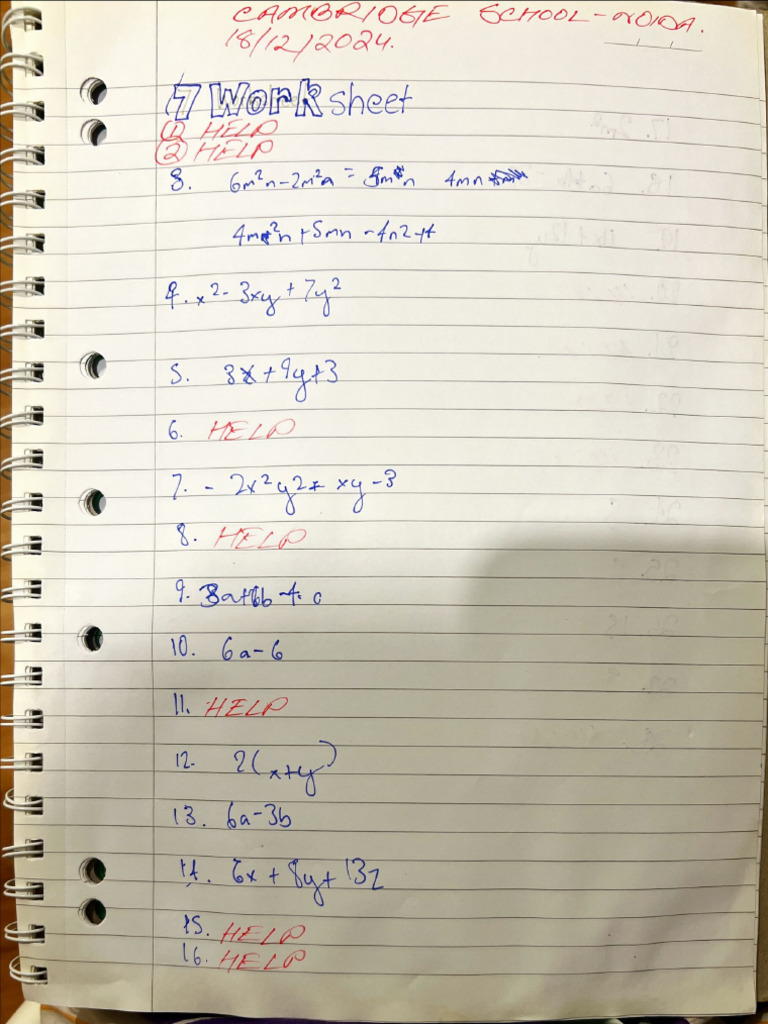 CAMBRIDGE SCHOOL-NOIDA.
18/12/2024.
7 Worksheet
① HELP
② HELP
3. 6m²n-2m²n = 4mn
4m²n+5mn-4n2+4
4. x²-3xy+7y²
5. 3x+9y+3
6. HELP
7. - 2x²y2+ xy-3
8. HELP
9. 3a+6b-4.c
10. 6a-6
11. HELP
12. 2(x+y)
13. 6a-3b
14. 6x+8y+13z
15. HELP
16. HELP